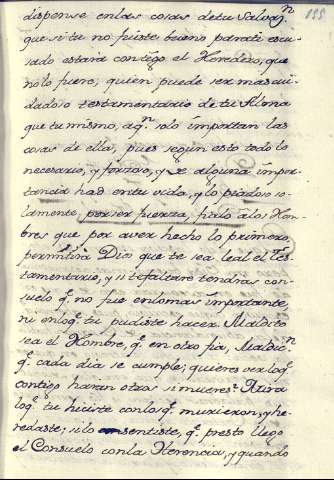 dispense en las cosas de tu Salvaz.n
que si tu no fuiste bueno para ti escu-
sado estara contigo el Heredero, que
no lo fuere, quien puede ser mas cui-
dadoso testamentario de tu Alma
que tu mismo, a q.n solo importan las
cosas de ella, pues según esto todo lo
necesario, y forzoso, y de alguna impor-
tancia haz en tu vida, y lo piadoso so-
lamente, por ser fuerza, fialo a los Hon-
bres que por aver hecho lo primero,
permitirà Dios que te sea leal el Tes-
tamentario, y si te faltare tendras con-
suelo q.e no fue en lo mas importante,
ni en lo q.e tu pudiste hacer. Maldito
sea el Hombre, q.e en otro fia, Maldic.n
q.e cada dia se cumple; quieres ver lo q.e
contigo haran otros si mueres? Mira
lo q.e tu hiciste con los q.e murieron, y he-
redaste; si lo sentiste, q.e presto llegò
el Consuelo con la Herencia, y quando